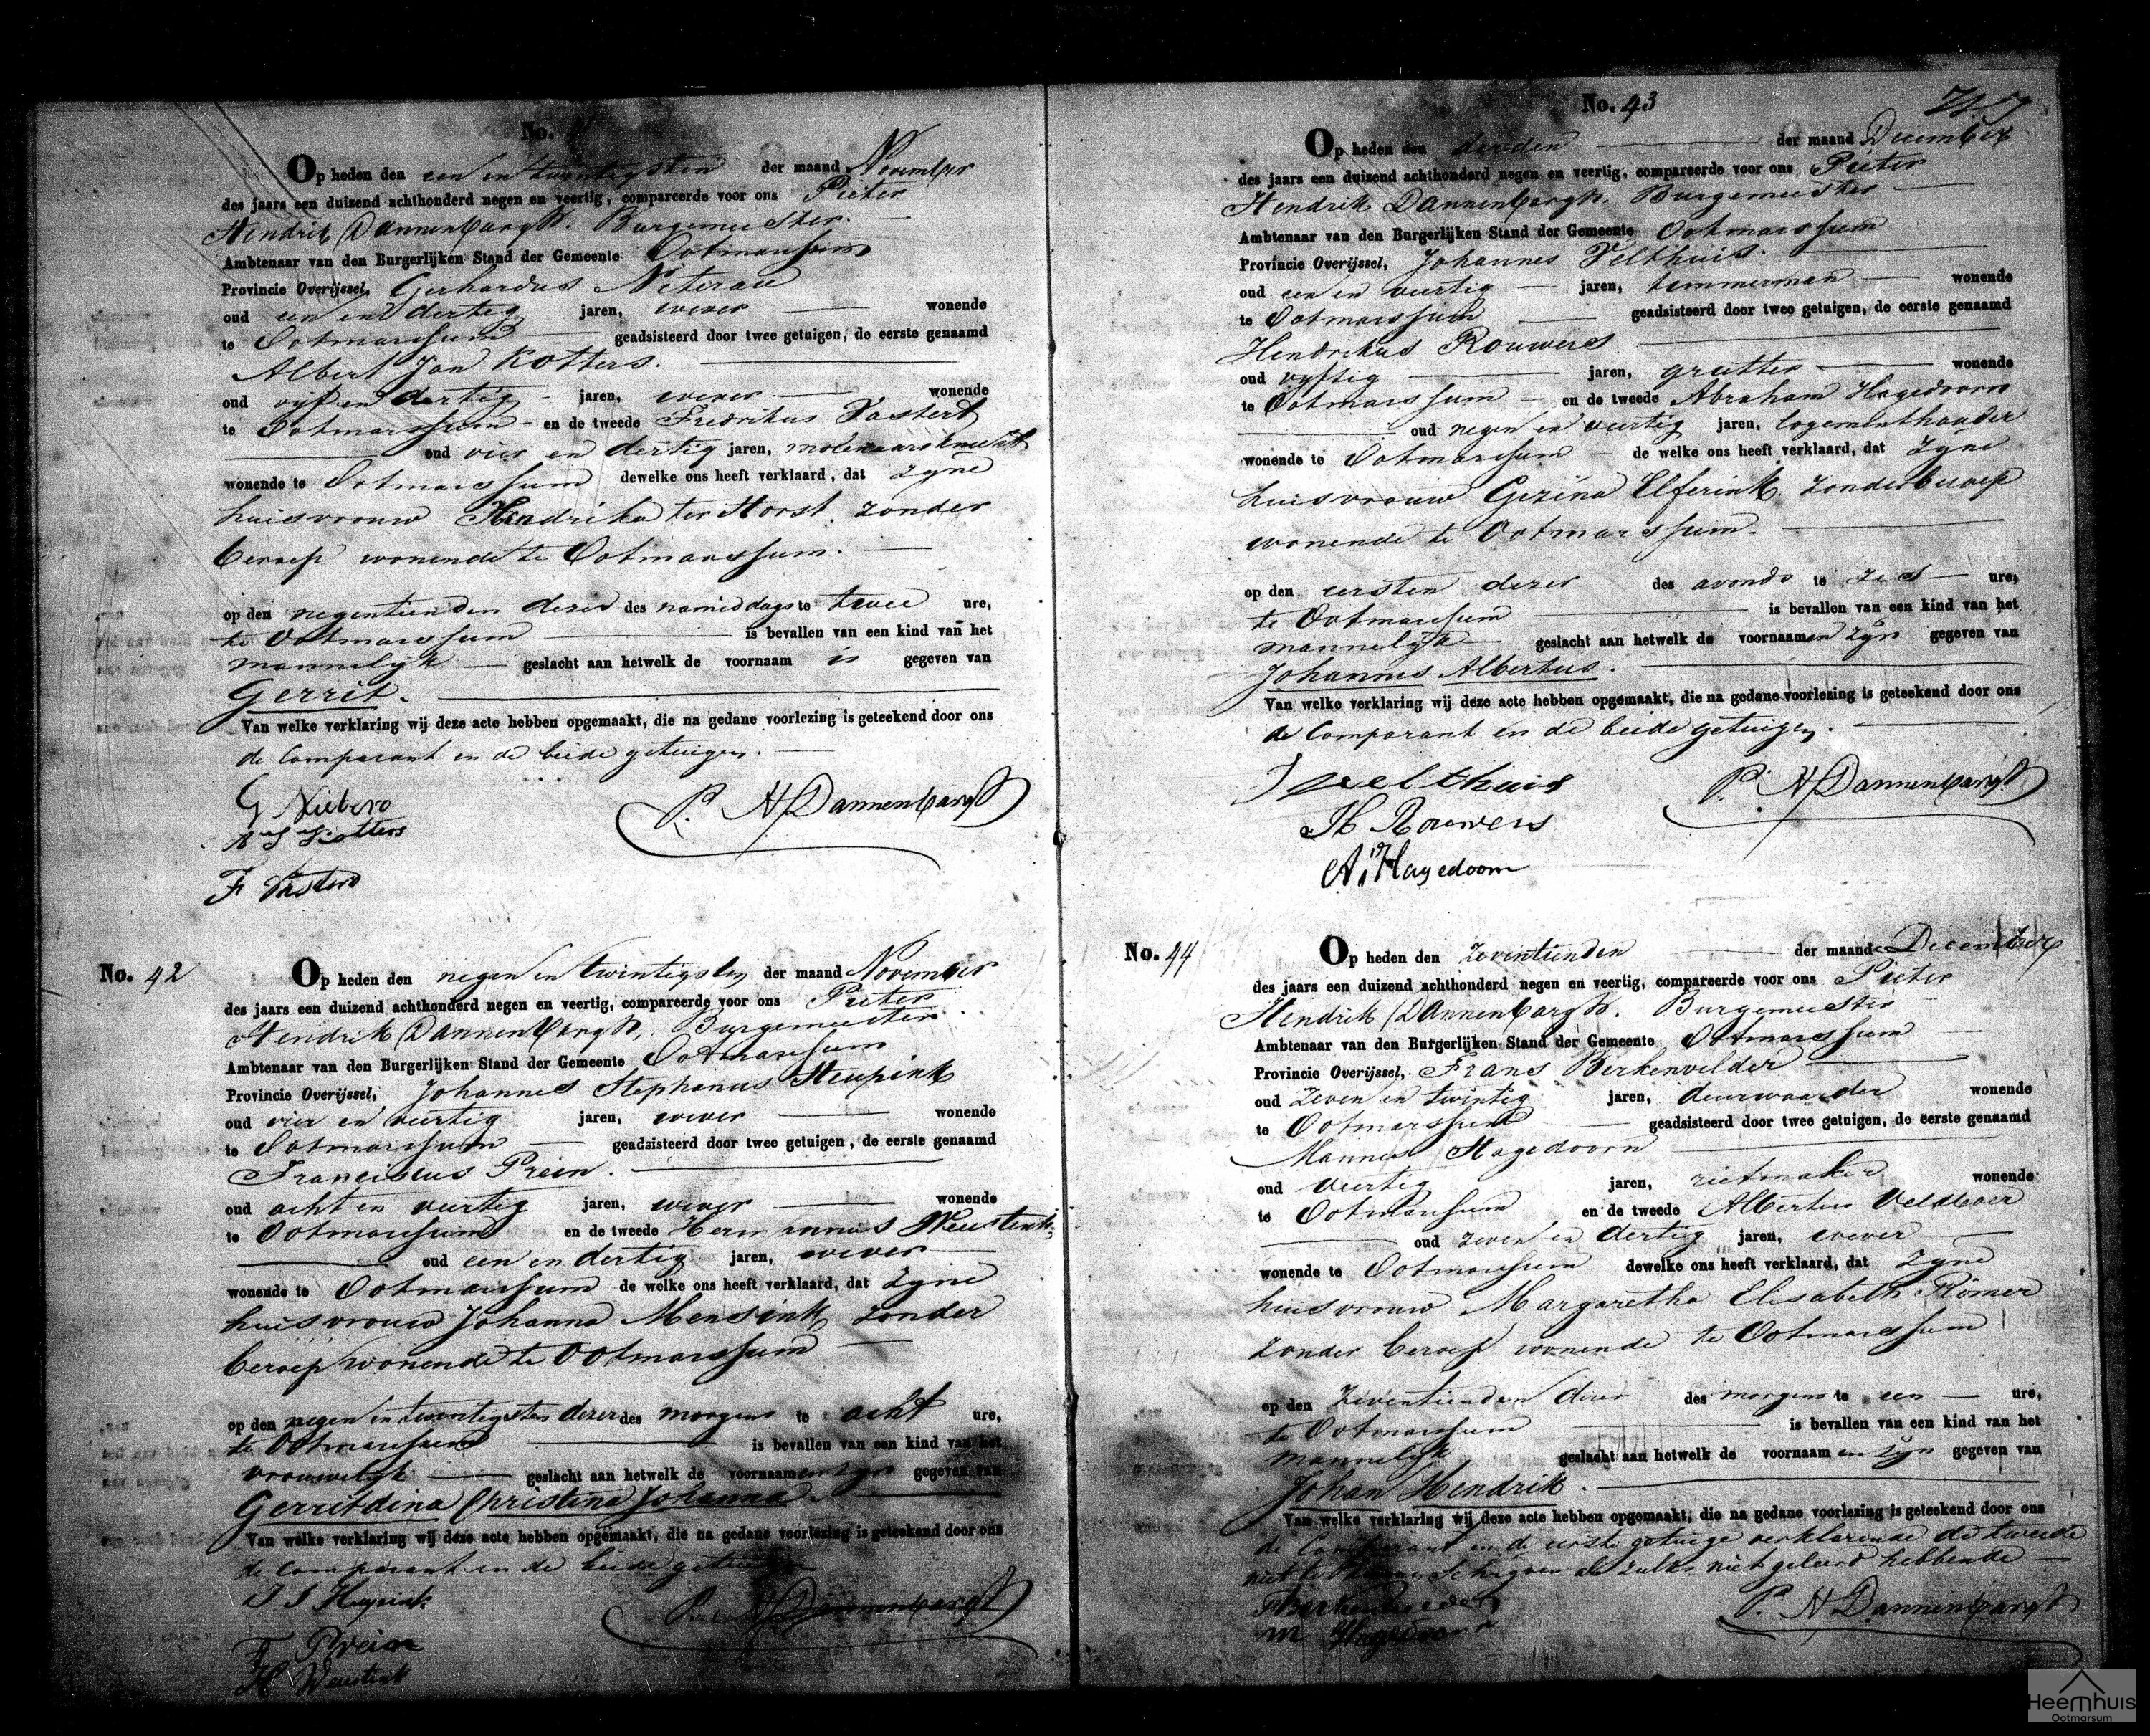 No. 41
Op heden den een en twintigsten der maand November
des jaars een duizend achthonderd negen en veertig, compareerde voor ons Pieter
Hendrik Dannenbargh. Burgemeester.
Ambtenaar van den Burgerlijken Stand der Gemeente Ootmarssum
Provincie Overijssel, Gerhardus
oud een en dertig jaren, wever wonende
te Ootmarssum geadsisteerd door twee getuigen, de eerste genaamd
Albert Jan Kotters.
oud vijf en dertig jaren, wever wonende
te Ootmarssum en de tweede Fredrikus Vastert
oud vier en dertig jaren, molenaarsknecht
wonende te Ootmarssum dewelke ons heeft verklaard, dat zyne
huisvrouw Hendrika ter Horst. zonder
beroep wonende te Ootmarssum.
op den negentienden dezer des namiddags te twee ure,
te Ootmarssum is bevallen van een kind van het
mannelijk geslacht aan hetwelk de voornaam is gegeven van
Gerrit.
Van welke verklaring wij deze acte hebben opgemaakt, die na gedane voorlezing is geteekend door ons
de Comparant en de beide getuigen.
P. H Dannenbargh
A J Kotters
No. 42
Op heden den negen en twintigsten der maand November
des jaars een duizend achthonderd negen en veertig, compareerde voor ons Pieter
Hendrik Dannenbargh, Burgemeester.
Ambtenaar van den Burgerlijken Stand der Gemeente Ootmarssum
Provincie Overijssel, Johannes Stephanus Heupink
oud vier en veertig jaren, wever wonende
te Ootmarssum geadsisteerd door twee getuigen, de eerste genaamd
Franciscus Prein.
oud acht en veertig jaren, wever wonende
te Ootmarssum en de tweede Hermannus Weustink
oud een en dertig jaren, wever
wonende te Ootmarssum de welke ons heeft verklaard, dat zyne
huisvrouw Johanna Mensink zonder
beroep wonende te Ootmarssum
op den negen en twintigsten dezer des morgens te acht ure,
te Ootmarssum is bevallen van een kind van het
vrouwelijk geslacht aan hetwelk de voornaamen zyn gegeven van
Gerritdina Christina Johanna.
Van welke verklaring wij deze acte hebben opgemaakt, die na gedane voorlezing is geteekend door ons
de Comparant en de beide getuigen
J S Heupink
P. H Dannenbargh
F Prein
H Weustink
No. 43
Op heden den derden der maand December
des jaars een duizend achthonderd negen en veertig, compareerde voor ons Pieter
Hendrik Dannenbargh. Burgemeester
Ambtenaar van den Burgerlijken Stand der Gemeente Ootmarssum
Provincie Overijssel, Johannes Velthuis.
oud een en veertig jaren, temmerman wonende
te Ootmarssum geadsisteerd door twee getuigen, de eerste genaamd
Hendrikus Rouwers
oud vyftig jaren, grutter wonende
te Ootmarssum en de tweede Abraham Hagedoorn
oud negen en veertig jaren, logementhouder
wonende te Ootmarssum de welke ons heeft verklaard, dat zyne
huisvrouw Gezina Elferink. zonder beroep
wonende te Ootmarssum.
op den eersten dezer des avonds te zes ure,
te Ootmarssum is bevallen van een kind van het
mannelijk geslacht aan hetwelk de voornaamen zyn gegeven van
Johannes Albertus.
Van welke verklaring wij deze acte hebben opgemaakt, die na gedane voorlezing is geteekend door ons
de Comparant en de beide getuigen.
J velthuis
P. H Dannenbargh
H Rouwers
A. Hagedoorn
No. 44
Op heden den zeventienden der maand December
des jaars een duizend achthonderd negen en veertig, compareerde voor ons Pieter
Hendrik Dannenbargh. Burgemeester
Ambtenaar van den Burgerlijken Stand der Gemeente Ootmarssum
Provincie Overijssel, Frans Berkenvelder
oud zeven en twintig jaren, deurwaarder wonende
te Ootmarssum geadsisteerd door twee getuigen, de eerste genaamd
Mannes Hagedoorn
oud veertig jaren, rietmaker wonende
te Ootmarssum en de tweede Albertus Veldboer
oud zeven en dertig jaren, wever
wonende te Ootmarssum dewelke ons heeft verklaard, dat zyne
huisvrouw Margaretha Elisabeth Römer
zonder beroep wonende te Ootmarssum
op den zeventienden dezer des morgens te een ure,
te Ootmarssum is bevallen van een kind van het
mannelijk geslacht aan hetwelk de voornaamen zyn gegeven van
Johan Hendrik.
Van welke verklaring wij deze acte hebben opgemaakt, die na gedane voorlezing is geteekend door ons
de Comparant en de eerste getuige verklarende de tweede
niet te kunnen schryven als zulks niet geleerd hebbende
P. H Dannenbargh
M Hagedoorn
Heemhuis
Ootmarsum